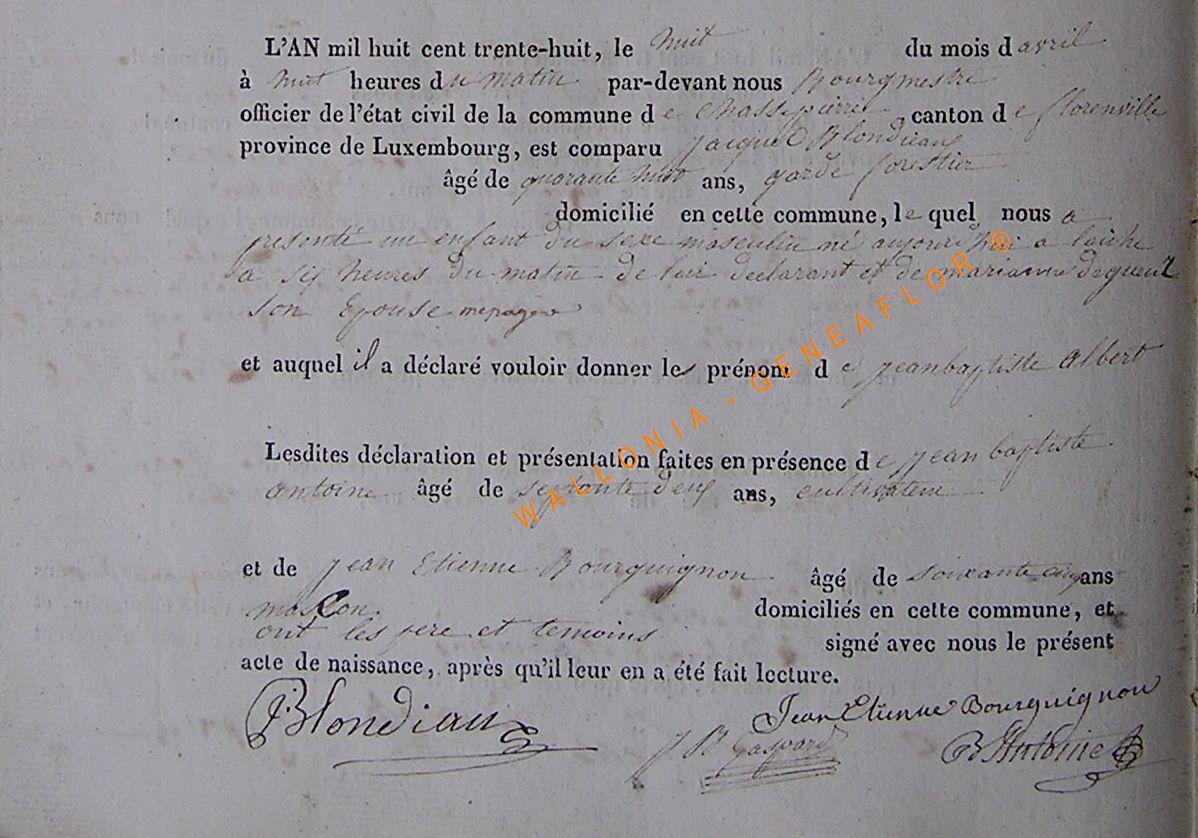 L'AN mil huit cent trente-huit, le huit du mois d avril
à huit heures du matin par-devant nous Bourgmestre
officier de l'état civil de la commune de Chassepierre canton de florenville
province de Luxembourg, est comparu jacque Blondiau
âgé de quarante huit ans, garde forestier
domicilié en cette commune, le quel nous a
presenté un enfant du sexe masculin né aujourd'hui a laiche
a six heures du matin de lui declarant et de marianne
son Epouse menagere
et auquel il a déclaré vouloir donner les prénom de jeanbaptiste albert
Lesdites déclaration et présentation faites en présence de jean baptiste
antoine âgé de septante deux ans, cultivateur
et de jean Etienne Bourguignon âgé de soixante cinq ans
domiciliés en cette commune, et
ont les pere et temoins signé avec nous le présent
acte de naissance, après qu'il leur en a été fait lecture.
Blondiau
Jean Etienne Bourguignon
J B Gaspard
B Antoine
WALLONIA - GENEAFLOR ®